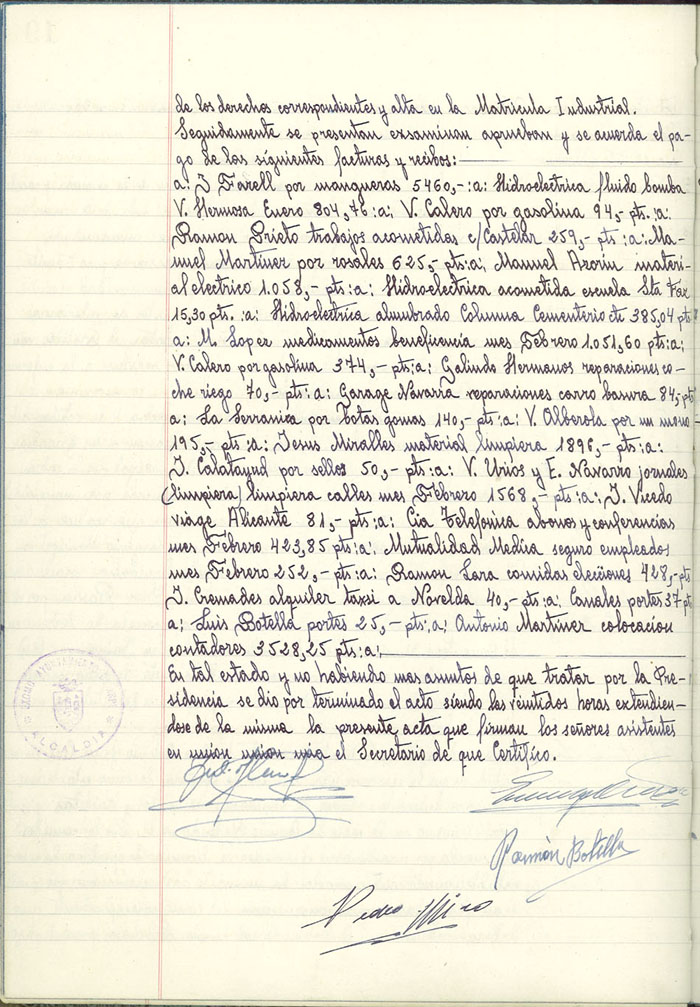 de los derechos correspondientes y alta en la Matricula Industrial.
Seguidamente se presentan exsaminan aprueban y se acuerda el pa-
go de las siguientes facturas y recibos:
a: J Farell por mangueras 5460,- :a: Hidroelectrica fluido bomba
V. Hermosa Enero 804,76 :a; V. Calero por gasolina 94,- pts. :a:
Ramon Prieto trabajos acometidas c/Castelar 259,- pts :a: Ma-
nuel Martinez por rosales 625,- pts:a; Manuel Azorin materi-
al electrico 1.058,- pts:a: Hidroelectrica acometida escuela Sta Faz
15,30 pts. :a: Hidroelectrica alumbrado Columna Cementerio 385,04 pts
a: M. Lopez medicamentos beneficencia mes Febrero 1.051,60 pts:a;
V. Calero por gasolina 374,- pts:a: Galindo Hermanos reparaciones co-
che riego 70,- pts:a: Garage Navarra reparaciones carro basura 84,- pts
a: La Serranica por botas gomas 140,- pts:a: V. Alberola por un mono
195,- pts:a: Jesus Miralles material limpiera 1896,- pts:a:
J. Calatayud por sellos 50,- pts:a: V. Urios y E. Navarro jornales
(limpiera) limpiera calles mes Febrero 1568,- pts:a: J. Vicedo
viage Alicante 81,- pts:a: Cia Telefonica abonos y conferencias
mes Febrero 423,85 pts:a: Mutualidad Medica seguro empleados
mes Febrero 252,- pts:a: Ramon Lara comidas elecciones 428,- pts
J. Cremades alquiler taxsi a Novelda 40,- pts:a: Canales portes 37 pts
a: Luis Botella portes 25,- pts:a: Antonio Martinez colocacion
contadores 3528,25 pts:a:
En tal estado y no habiendo mas asuntos de que tratar por la Pre-
sidencia se dio por terminado el acto siendo las veintidos horas extendien-
dose de la misma la presente acta que firman los señores asistentes
en union union mia el Secretario de que Certifico.
ALCALDIA
Ramón Botella
Pedro Miro